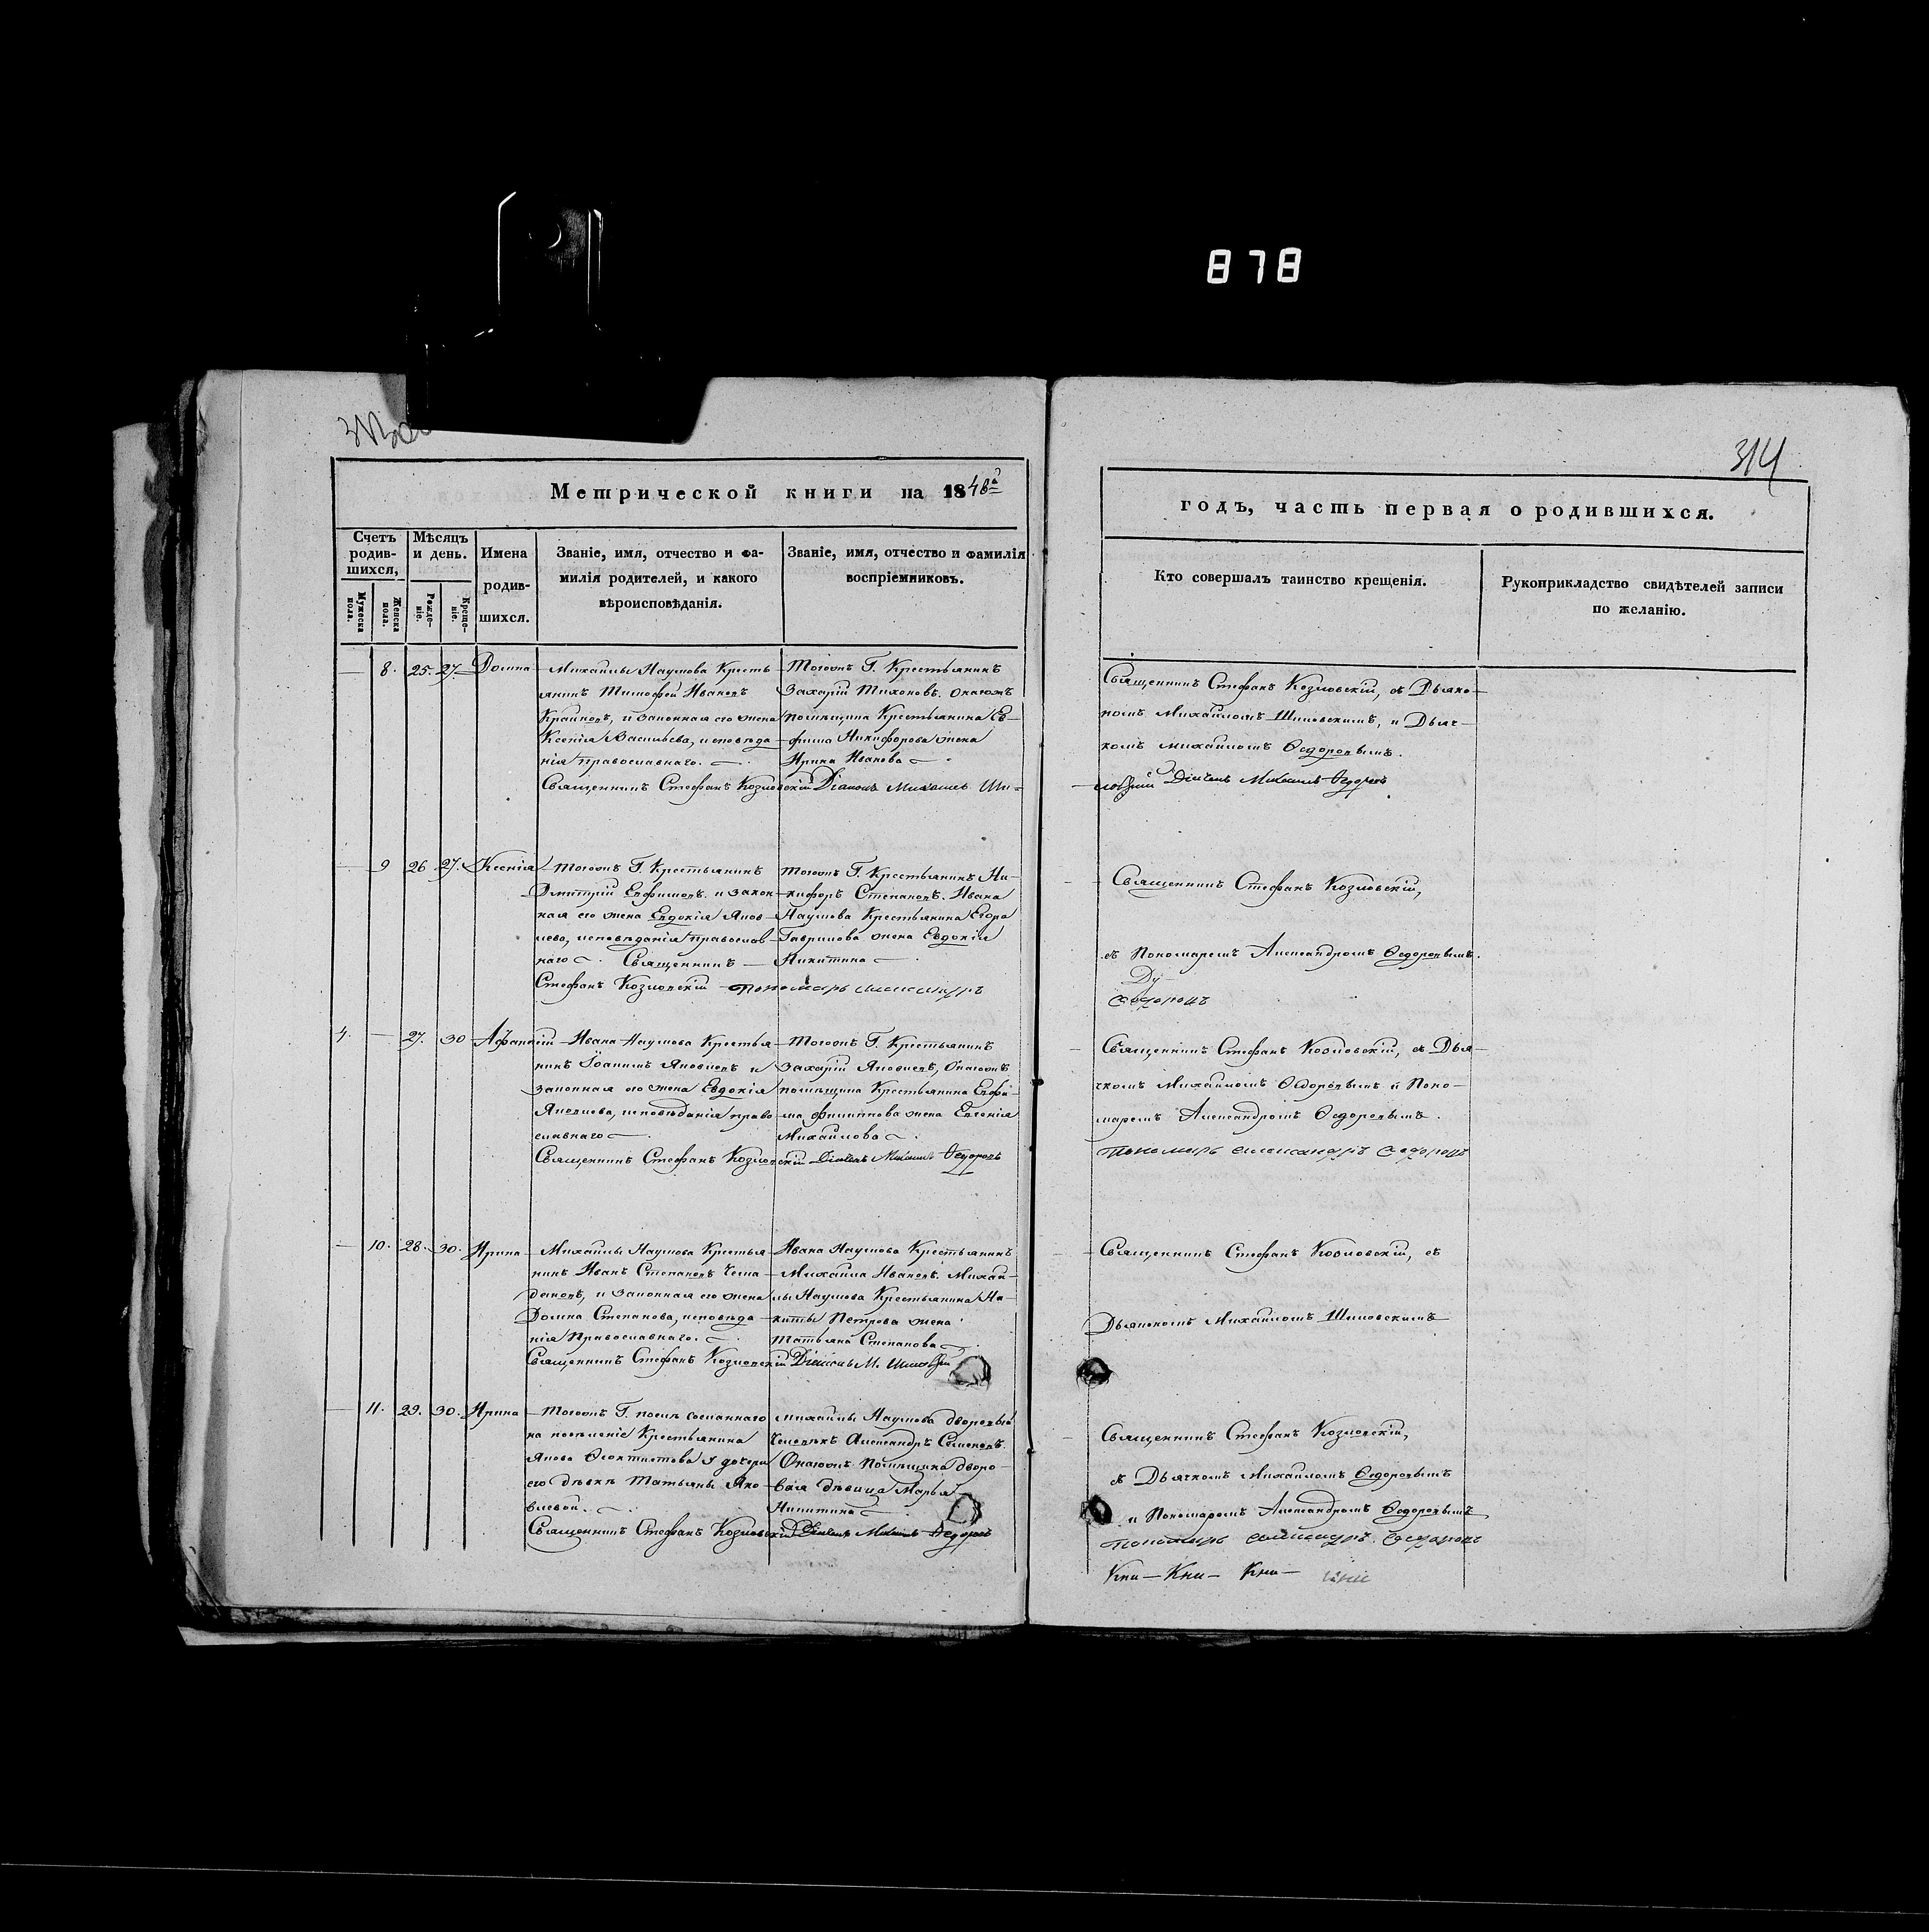 878
314
Метрической книги на 1848й
годъ, часть первая о родившихся.
Счетъ родив-шихся,
Мужеска пола.
Женска пола.
Мѣсяцъ и день.
Рожде-ніе.
Креще-ніе.
Имена родив-шихся.
Званіе, имя, отчество и фа-
милія родителей, и какого
вѣроисповѣданія.
Званіе, имя, отчество и фамилія
воспріемниковъ.
Кто совершалъ таинство крещенія.
Рукоприкладство свидѣтелей записи
по желанію.
— 8. 25. 27. Домна
Михаилы Наумова Кресть
янинъ Тимофей Ивановъ
и законная его жена
Ксенія Васильева, исповѣда
нія православнаго.
Тогожъ Г. Крестьянинъ
Захарій Тихоновъ. Онагожъ
помѣщика Крестьянина Ев-
фима Никифорова жена
Ирина Иванова
Священникъ Стефанъ Козловскій, съ Дьяко-
номъ Михаиломъ Шиповскимъ, и Дьяч-
комъ Михаиломъ Ѳедоровымъ.
Священникъ Стефанъ Козловскій Діаконъ Михаилъ Ши=
Дьячекъ Михаилъ Ѳедоровъ
— 9 26 27. Ксенія
Тогожъ Г. Крестьянинъ
Дмитрій Евфимовъ. и закон
ная его жена Евдокія Яков
лева, исповѣданія православ
наго. Священникъ
Стефанъ Козловскій
Тогожъ Г. Крестьянинъ Ни-
кифоръ Степановъ. Ивана
Наумова Крестьянина Егора
Гаврилова жена Евдокія
Никитина
пономарь александръ
Священникъ Стефанъ Козловскій,
съ Пономаремъ Александромъ Ѳедоровымъ.
Ѳедоровъ
4. — 27. 30 Афанасій
Ивана Наумова Крестья
нинъ Іоаннъ Яковлевъ и
законная его жена Евдокія
Яковлева, исповѣданія право
славнаго
Тогожъ Г. Крестьянинъ
Захарій Яковлевъ, Онагожъ
помѣщика Крестьянина Евфи-
ма Филиппова жена Евгенія
Михайлова
Священникъ Стефанъ Козловскій Дьячекъ Михаилъ Ѳедоровъ
Священникъ Стефанъ Козловскій, съ Дья-
чкомъ Михаиломъ Ѳедоровымъ и Поно-
маремъ Александромъ Ѳедоровымъ.
Пономарь александръ Ѳедоровъ
— 10. 28. 30. Ирина
Михаилы Наумова Крестья
нинъ Иванъ Степановъ
и законная его жена
Домна Степанова, исповѣда
нія Православнаго.
Ивана Наумова Крестьянинъ
Михаилъ Ивановъ. Михаи-
лы Наумова Крестьянина Ни-
киты Петрова жена
Татьяна Степанова
Священникъ Стефанъ Козловскій Діаконъ М. Шиповскій
Священникъ Стефанъ Козловскій, съ
Дьякономъ Михаиломъ Шиповскимъ
— 11. 29. 30. Ирина
Тогожъ Г. послѣ сосланнаго
на поселеніе Крестьянина
Якова Ѳеоктистова у дочери
его дѣвки Татьяны Яко
влевой.
Михаилы Наумова дворовый
Человѣкъ Александръ Семеновъ.
Онагожъ Помѣщика дворо-
вая дѣвица Марья
Никитина
Священникъ Стефанъ Козловскій Дьячекъ Михаилъ Ѳедоровъ
Священникъ Стефанъ Козловскій,
съ Дьячкомъ Михаиломъ Ѳедоровымъ
и Пономаремъ Александромъ Ѳедоровымъ
пономарь александръ Ѳедоровъ
Кни — Кни — Кни —